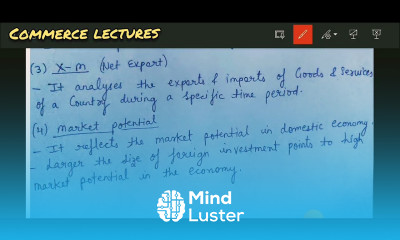 COMMERCE LECTURES
(3) X-m (Net Export)
- It analyses the exports & imports of Goods & Services
of a Country during a specific time period.
(4) market potential
- It reflects the market potential in domestic economy.
- Larger the size of foreign investment points to high
market potential in the economy.
Mind
Luster